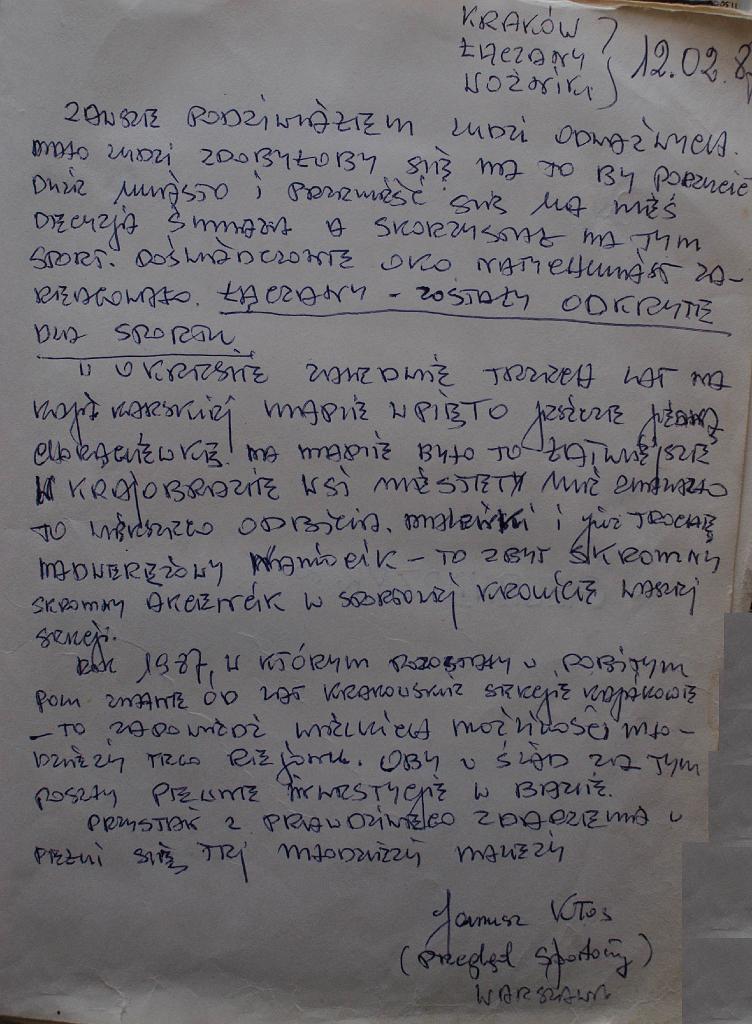 KRAKÓW
ŁĄCZANY
WOŹNIKI
12.02.8
ZAWSZE PODZIWIAŁEM LUDZI ODWAŻNYCH.
MAŁO LUDZI ZDOBYŁOBY SIĘ NA TO BY PORZUCIĆ
DUŻE MIASTO I PRZENIEŚĆ SIĘ NA WIEŚ
DECYZJĄ ŚMIAŁĄ A SKORZYSTAŁ NA TYM
SPORT. DOŚWIADCZONE OKO NATYCHMIAST ZA-
REAGOWAŁO. ŁĄCZANY - ZOSTAŁY ODKRYTE
DLA SPORTU
W OKRESIE ZALEDWIE TRZECH LAT NA
KAJAKARSKIEJ MAPIE WPIĘTO JESZCZE JEDNĄ
CHORĄGIEWKĘ. NA MAPIE BYŁO TO ŁATWIEJSZE
W KRAJOBRAZIE WSI NIESTETY NIE ZNALAZŁO
TO WIĘKSZEGO ODBICIA. MALEŃKI I JUŻ TROCHĘ
NADWERĘŻONY NAMIOCIK - TO ZBYT SKROMNY
SKROMNY AKCENCIK W SPORTOWEJ KRONICE WASZEJ
SEKCJI.
ROK 1987, W KTÓRYM POZOSTAŁY W POBITYM
POLU ZNANE OD LAT KRAKOWSKIE SEKCJE KAJAKOWE
- TO ZAPOWIEDŹ WIELKICH MOŻLIWOŚCI MŁO-
DZIEŻY TEGO REJONU. OBY W ŚLAD ZA TYM
POSZŁY PEWNE INWESTYCJE W BAZIE.
PRZYSTAŃ Z PRAWDZIWEGO ZDARZENIA W
PEŁNI SIĘ TEJ MŁODZIEŻY NALEŻY
Janusz Kłos
(Przegląd Sportowy)
WARSZAWA